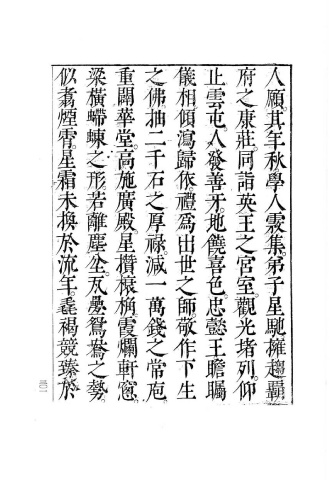 人願。其年秋、學人霧集。弟子星馳、擁趨覊
府之康莊。同詣英王之宮室。觀光堵列。仰
止雲屯。人發善牙。地饒喜色。忠懿王瞻矚
儀相。傾瀉歸依。禮爲出世之師。敬作下生
之佛。抽二千石之厚祿。減一萬錢之常庖。
重闢華堂。高施廣殿。星攢榱桷。霞爛軒窓。
梁橫螮蝀之形。若離塵坌。瓦疊鴛鴦之勢。
似翥煙霄。星霜未換於流年。毳褐競臻於